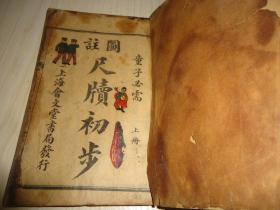 圖註
童子必需
尺牘初步
上冊
上海會文堂書局發行